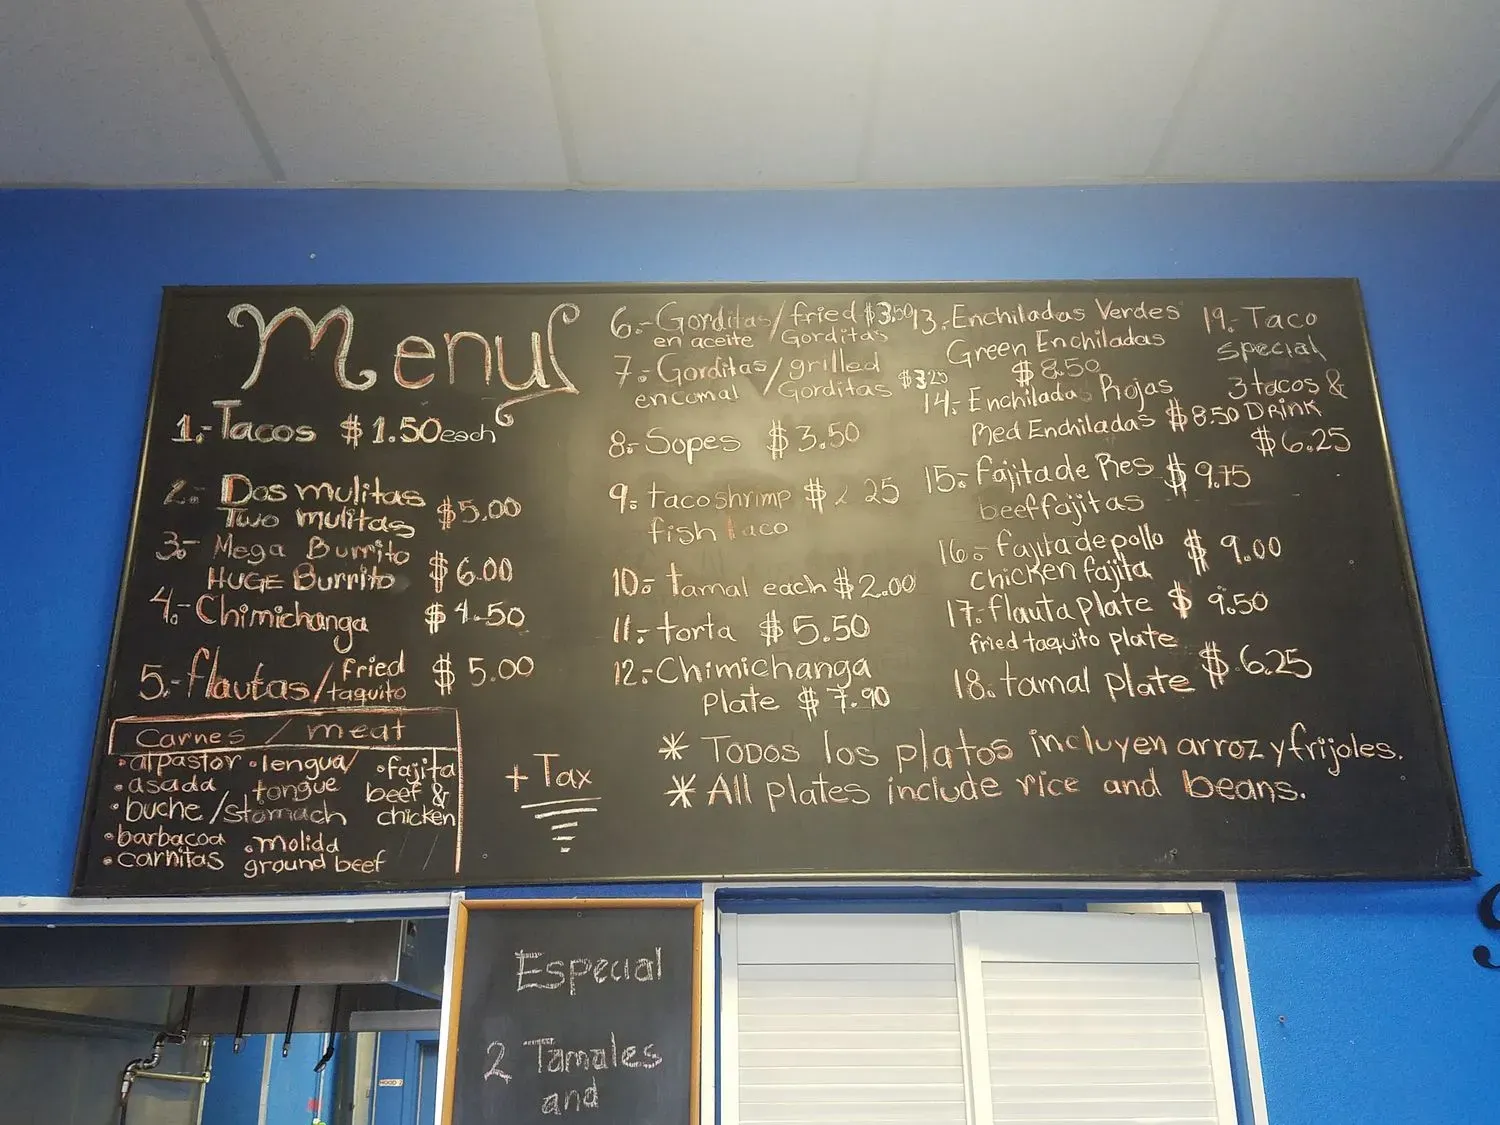 Menu
1.- Tacos $1.50 each
2.- Dos mulitas
Two mulitas $5.00
3.- Mega Burrito
HUGE Burrito $6.00
4.- Chimichanga $4.50
5.- flautas/fried taquito $5.00
Carnes / meat
•alpastor •lengua/ •fajita
•asada tongue beef &
•buche/stomach chicken
•barbacoa •molida
•carnitas ground beef
+ Tax
6.- Gorditas/fried $3.50
en aceite/Gorditas
7.- Gorditas/grilled
en comal/Gorditas $3.25
8.- Sopes $3.50
9.- taco shrimp $2.25
fish taco
10.- tamal each $2.00
11.- torta $5.50
12.- Chimichanga
Plate $7.90
13.- Enchiladas Verdes
Green Enchiladas
$8.50
14.- Enchiladas Rojas
Red Enchiladas $8.50
15.- Fajita de Res $9.75
beef fajitas
16.- fajita de pollo $9.00
chicken fajita
17.- flauta plate $9.50
fried taquito plate
18.- tamal plate $6.25
19.- Taco
special
3 tacos &
DRINK
$6.25
* Todos los platos incluyen arroz y frijoles.
* All plates include rice and beans.
Especial
2 Tamales
and
HOOD 2